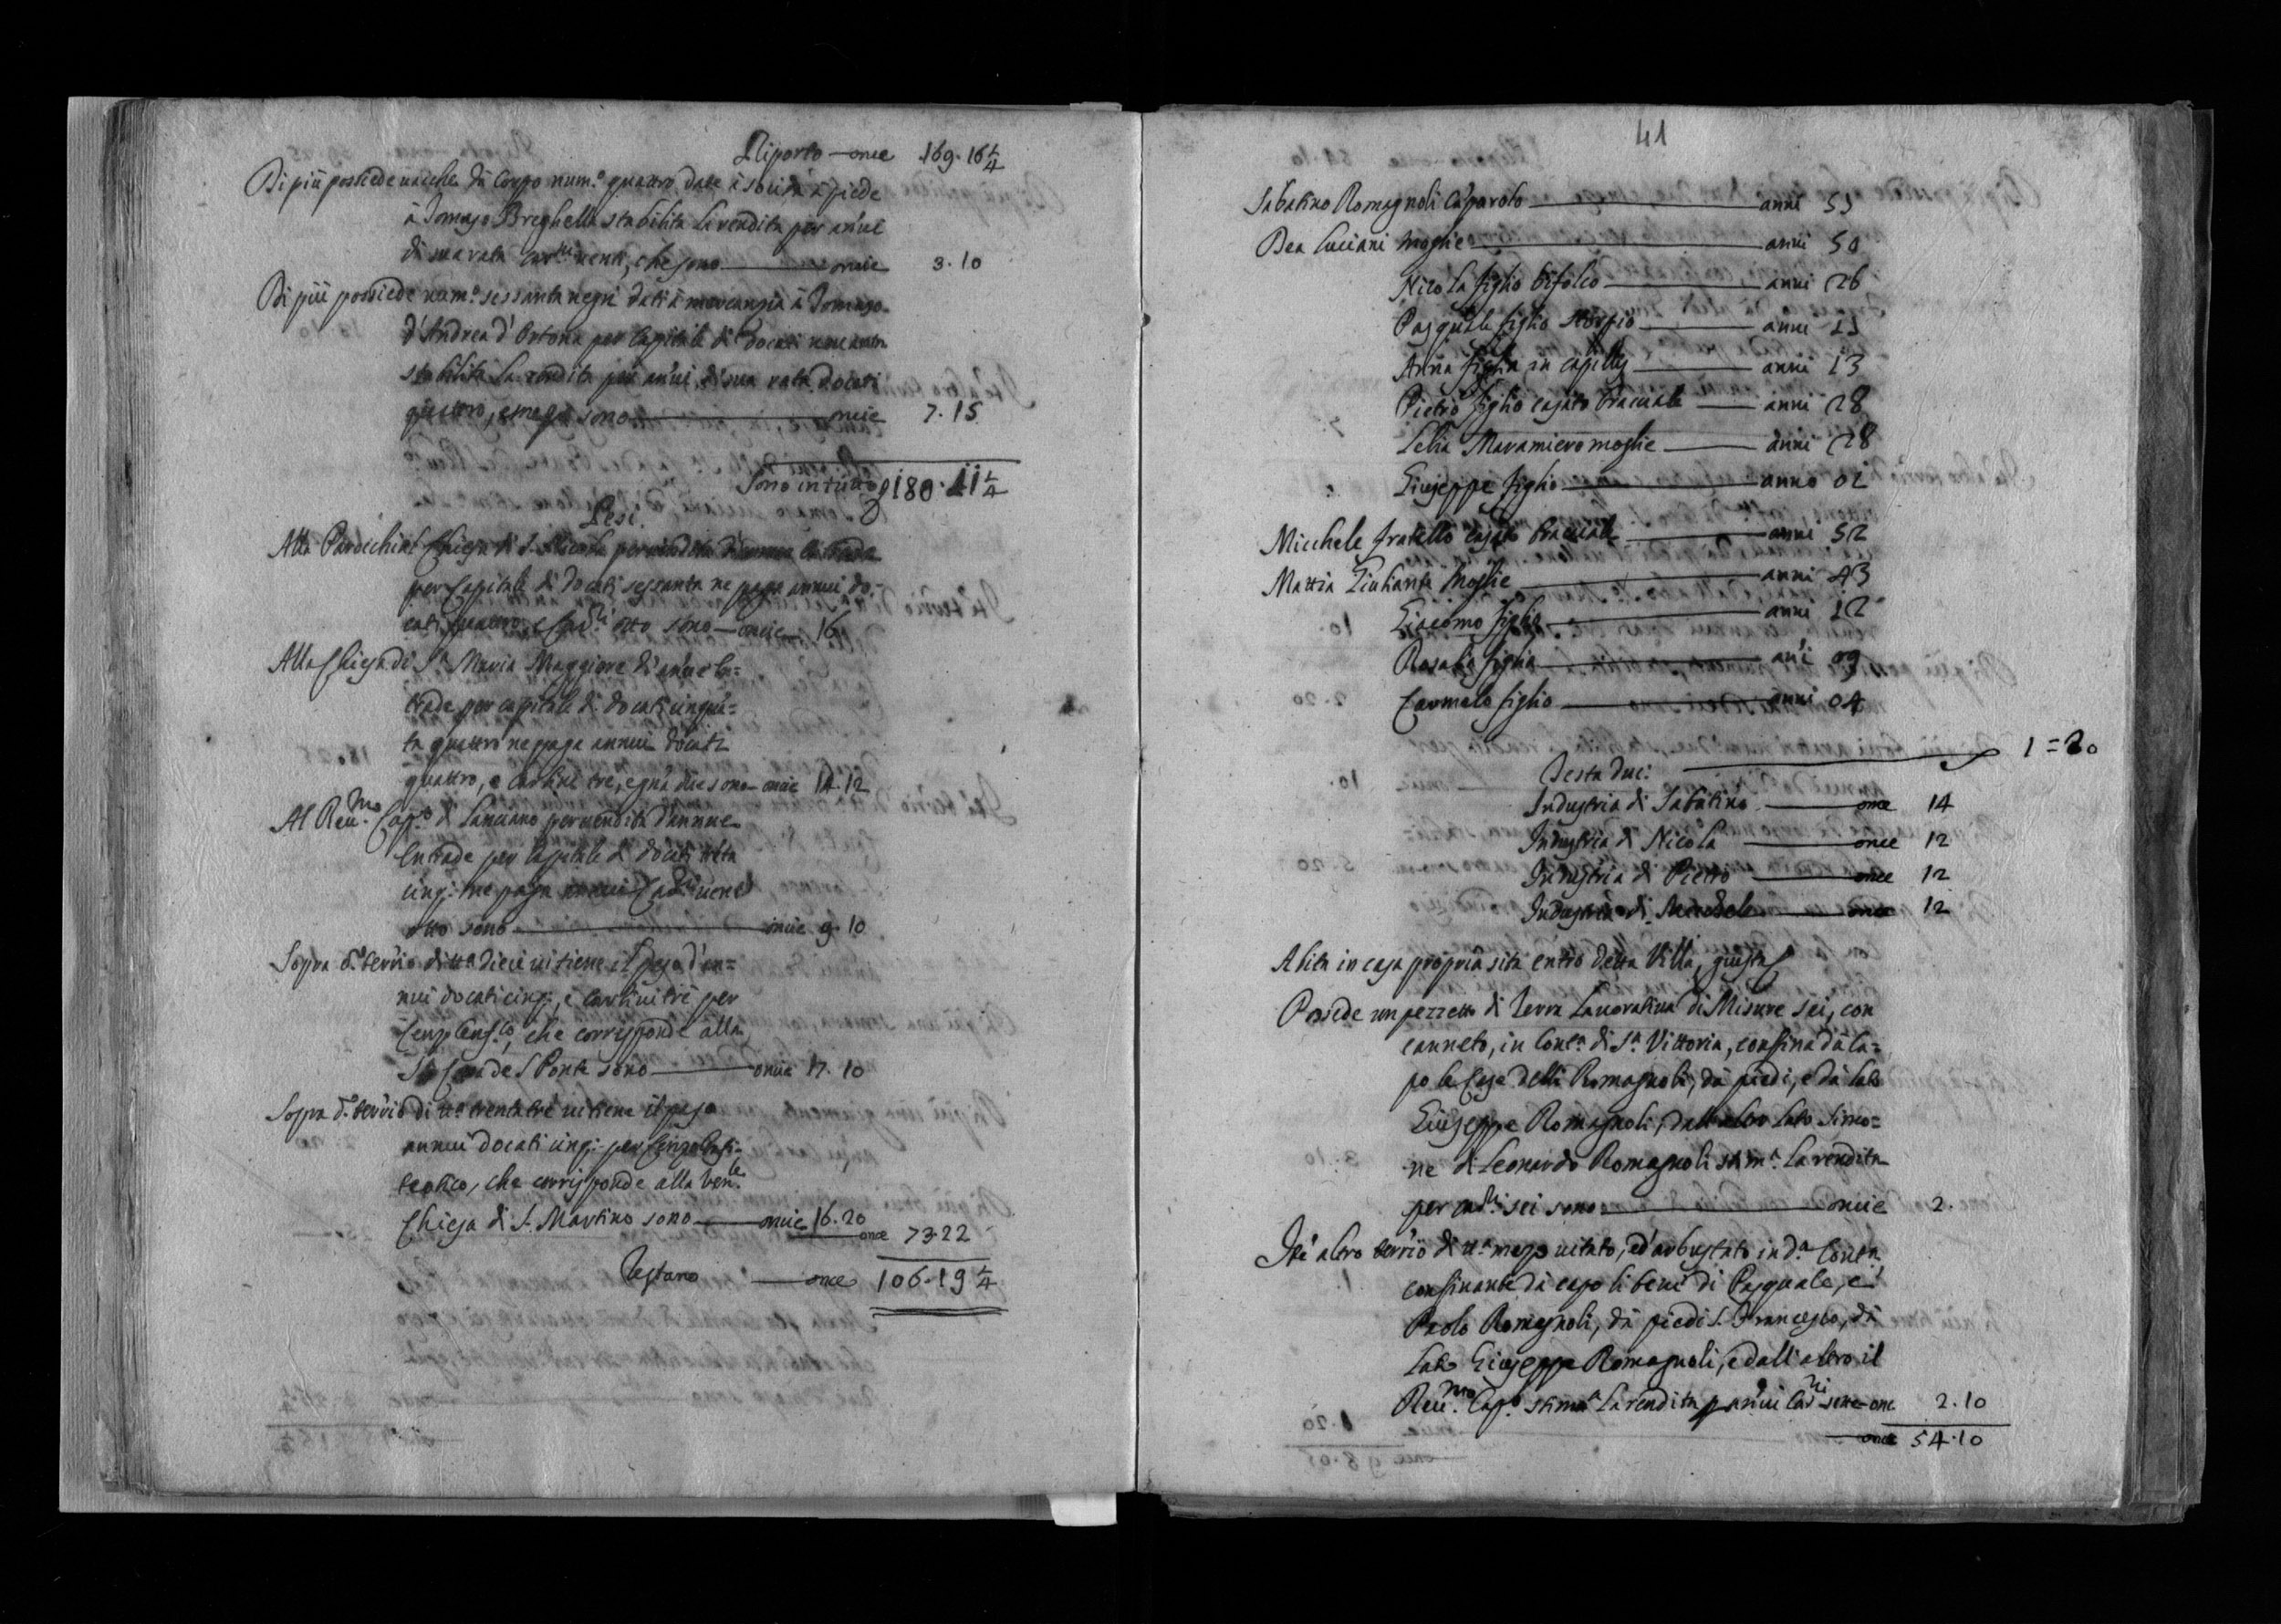 Riporto — once 169.16 1/4
Di più possiede vacche da corpo num.º quattro date à soccida à piede
à Tomaso Breghella stabilita la rendita per an'ue
di sua rata carni venti, che sono — oncie 3.10
Di più possiede num.º sessanta negri dati à mercanzia à Tomaso
d'Andrea d'Ortona per capitale di docati
stabilita la rendita per an'ui di sua rata docati
quattro, e mezzo sono — oncie 7.15
Sono in tutto 180.11 1/4
Pesi
Alla Parochial Chiesa di S. Nicola per vendita d'annue entrade
per capitale di docati sessanta ne paga annui do-
cati quattro, e carli otto sono — oncie 16
Alla Chiesa di S.ª Maria Maggiore di an'ue en=
trade per capitale di docati cinqua=
ta quattro ne paga annui docati
quattro, e carlini tre, e grna due sono — oncie 14.12
Al Reu.mo Cap.º di Lanciano per vendita d'annue
Entrade per capitale di docati trenta
cinq: ne paga annui carli vent
otto sono — oncie 9.10
Sopra d.º terr'io di tt.ª dieci vi tiene il peso d'an=
nui docati cinq:, e carlini trè per
Cenzo Enf.co, che corrisponde alla
S. Casa del Ponte sono — oncie 17.10
Sopra d.º terr'io di tt.ª trentatre vi tiene il peso
annui docati cinq: per Cenzo Enfi-
teotico, che corrisponde alla Ven.le
Chiesa di S. Martino sono — oncie 16.20
once 73.22
Restano — once 106.19 1/4
41
Sabatino Romagnoli Caporolo — anni 55
Dea Luciani moglie — anni 50
Nicola figlio bifolco — anni 26
Pasquale figlio storpio — anni 15
Anna figlia in capillis — anni 13
Pietro figlio casato bracciale — anni 28
Lelia Maramiero moglie — anni 28
Giuseppe figlio — anno 01
Micchele fratello casato bracciale — anni 52
Mattia Giuliante moglie — anni 43
Giacomo figlio — anni 12
Rosalia figlia — an'i 09
Carmelo figlio — anni 04
Testa duc: — 1=20
Industria di Sabatino — once 14
Industria di Nicola — once 12
Industria di Pietro — once 12
Industria di Micchele — once 12
Abita in casa propria sita entro detta Villa, giusta
Possede un pezzetto di terra lavorativa di Misure sei, con
canneto, in Cont.ª di S.ª Vittoria, confina da ca=
po le Case delli Romagnoli, da piedi, e da lato
Giuseppe Romagnoli, dall'altro lato Simo=
ne di Leonardo Romagnoli stim.ª la rendita
per carli sei sono — oncie 2.
Ite' altro terr'io di tt.ª mezo vitato, ed'arbustato in d.ª Cont.ª,
confinante da capo li beni di Pasquale, e
Paolo Romagnoli, da piedi S. Francesco, da
lato Giuseppe Romagnoli, e dall'altro il
Reu.mo Cap.º stimª la rendita p an'ui carni sette — once 2.10
once 54.10